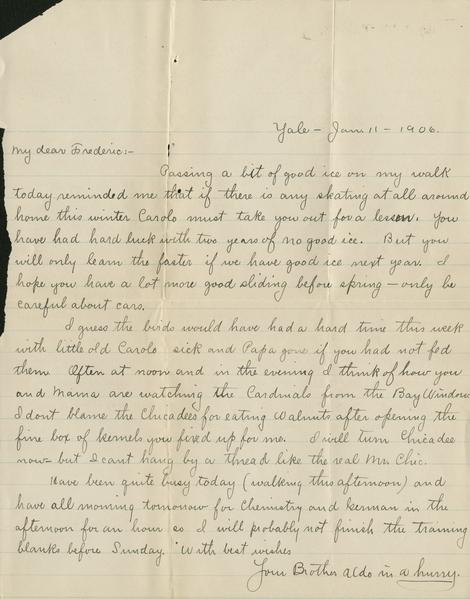 Yale - Jan. 11 - 1906.
My dear Frederic:-
Passing a bit of good ice on my walk
today reminded me that if there is any skating at all around
home this winter Carolo must take you out for a lesson. You
have had hard luck with two years of no good ice. But you
will only learn the faster if we have good ice next year. I
hope you have a lot more good sliding before spring - only be
careful about cars.
I guess the birds would have had a hard time this week
with little old Carolo sick and Papa gone if you had not fed
them. Often at noon and in the evening I think of how you
and Mama are watching the Cardinals from the Bay Window
I dont blame the Chicadees for eating Walnuts after opening the
fine box of kernels you fixed up for me. I will turn Chicadee
now - but I cant hang by a thread like the real Mr. Chic.
Have been quite busy today (walking this afternoon) and
have all morning tomorrow for Chemistry and German in the
afternoon for an hour so I will probably not finish the training
blanks before Sunday. With best wishes
Your Brother Aldo in a hurry.